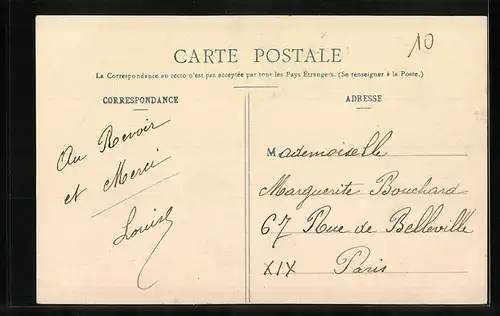 10
CARTE POSTALE
La Correspondance au recto n'est pas acceptée par tous les Pays Étrangers. (Se renseigner à la Poste.)
CORRESPONDANCE
Au Revoir
et Merci
Louise
ADRESSE
Mademoiselle
Marguerite Bouchard
67 Rue de Belleville
XIX Paris